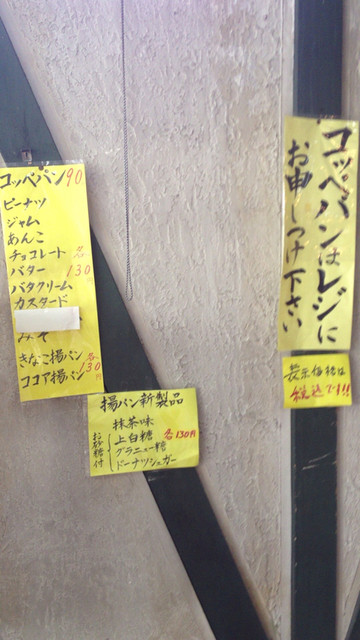 コッペパン90
ピーナツ
ジャム
あんこ
チョコレート 各
バター 130円
バタクリーム
カスタード
みそ
きなこ揚パン 各
ココア揚パン 130円
揚パン新製品
抹茶味
お砂糖付
上白糖 各130円
グラニュー糖
ドーナツシュガー
コッペパンはレジに
お申しつけ下さい
表示価格は
税込です!!!